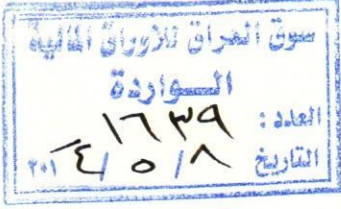 سوق العراق للأوراق المالية
الواردة
العدد: ١٦٣٩
التاريخ ٨/٥/٢٠١٤